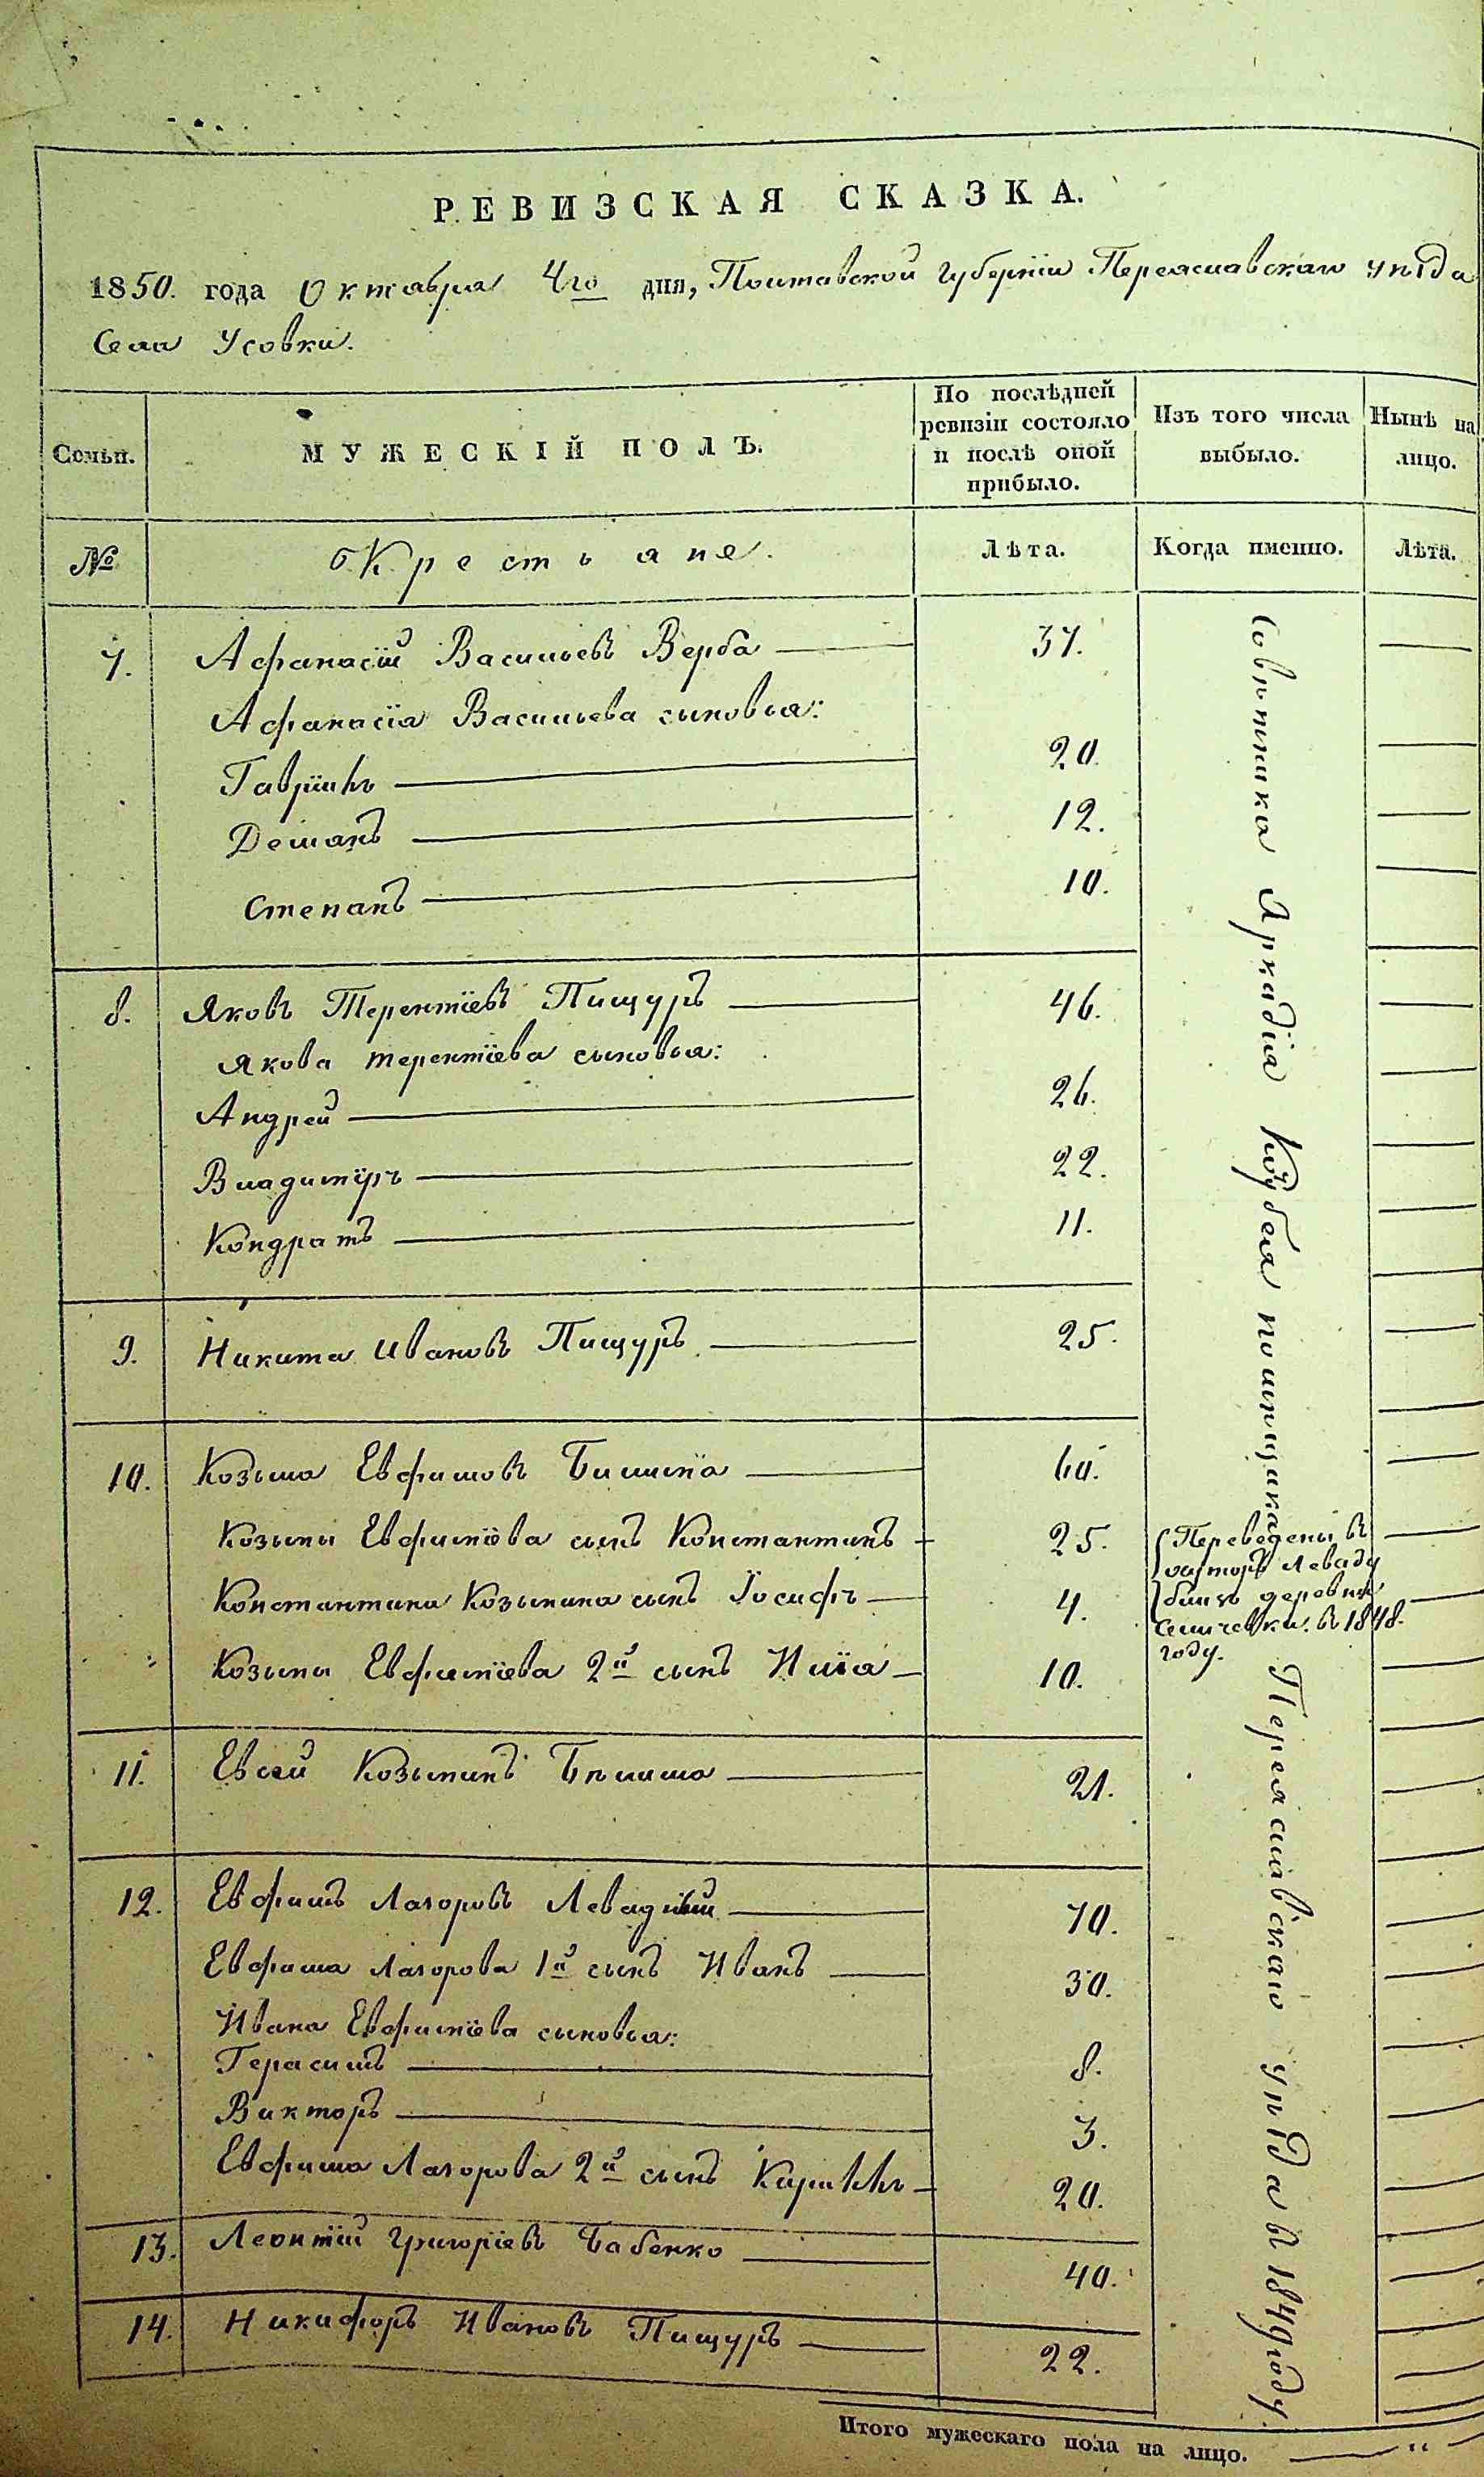 РЕВИЗСКАЯ СКАЗКА.
1850. года Октября 4го дня, Полтавской губерніи Переяславскаго уѣзда
Села Усовки.
Семьи.
МУЖЕСКІЙ ПОЛЪ.
По послѣдней
ревизіи состояло
и послѣ оной
прибыло.
Изъ того числа
выбыло.
Нынѣ на
лицо.
№
Крестьяне.
Лѣта.
Когда именно.
Лѣта.
7. Афанасій Васильевъ Верба 37.
Афанасія Васильева сыновья:
Гавріилъ 20.
Демянъ 12.
Степанъ 10.
8. Яковъ Терентіевъ Пищуръ 46.
Якова терентіева сыновья:
Андрей 26.
Владиміръ 22.
Кондратъ 11.
9. Никита Ивановъ Пищуръ 25.
10. Козьма Евфимовъ 60.
Козьмы Евфиміева сынъ Константинъ 25.
Константина Козьмина сынъ Іосифъ 4.
Козьмы Евфиміева 2й сынъ Илія 10.
11. Евсей Козьминъ 21.
12. Евфимъ Лазоровъ Левадный 70.
Евфима Лазорова 1й сынъ Иванъ 30.
Ивана Евфиміева сыновья:
Герасимъ 8.
Викторъ 3.
Евфима Лазорова 2й сынъ Кириллъ 20.
13. Леонтій Григоріевъ Бабенко 40.
14. Никифоръ Ивановъ Пищуръ 22.
Совѣтника Аркадія помѣщика Переяславскаго уѣзда въ 1849 году.
Переведены въ
хуторъ Леваду
близъ деревни
въ 1848.
году.
Итого мужескаго пола на лицо. "